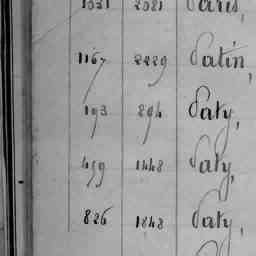 1031 2081 Paris,
1167 2229 Patin,
193 894 Paty,
459 1448 Paty,
826 1848 Paty,